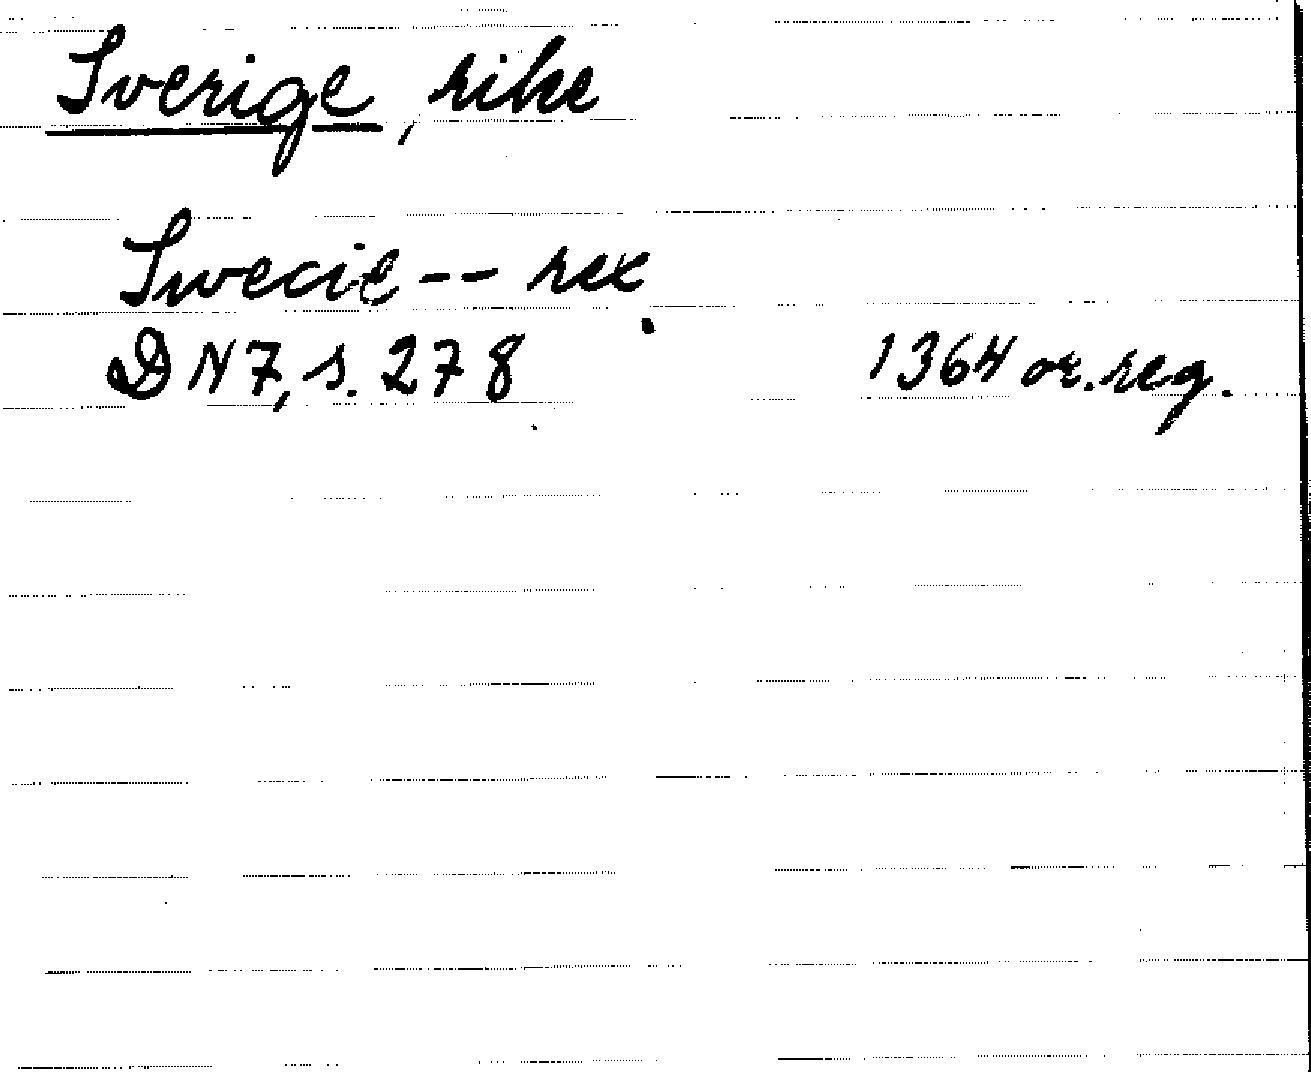 Sverige, rike
Swecie -- rex
DN 7, s. 278 1364 or. reg.